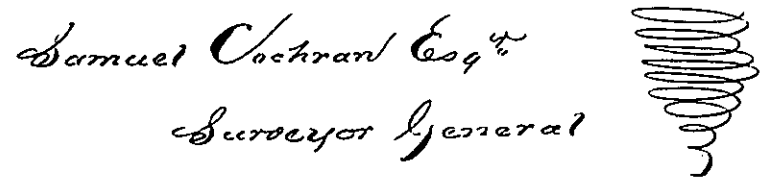 Samuel Cochran Esqr
Surveyor General